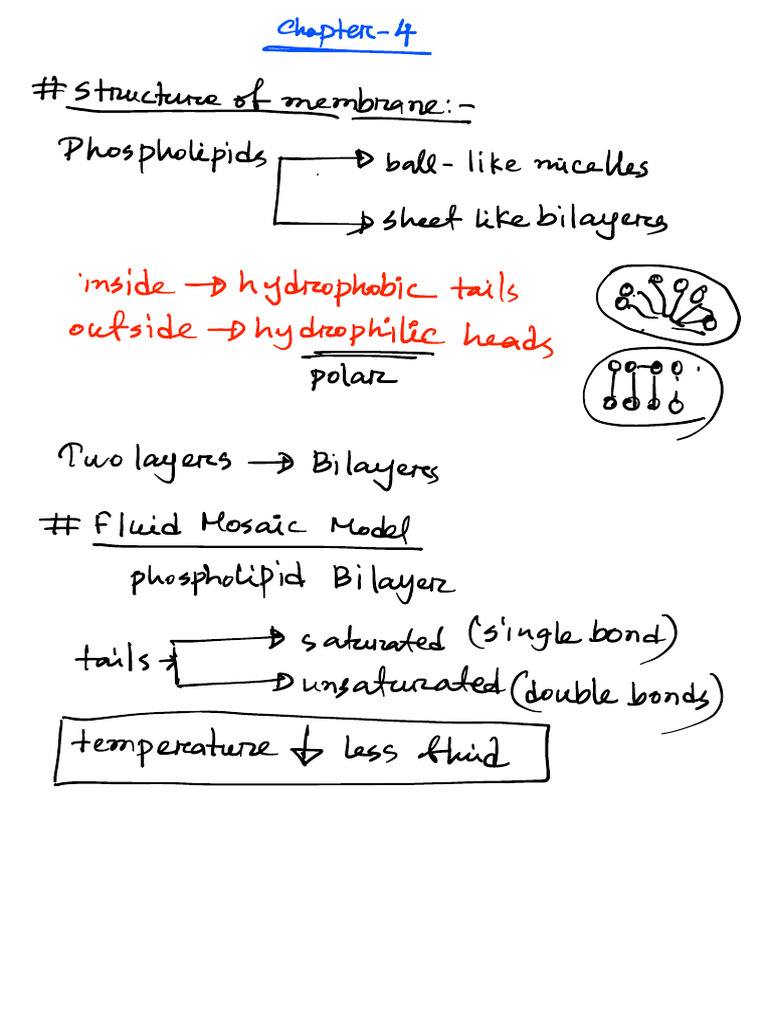 Chapter-4
# Structure of membrane:-
Phospholipids → ball-like micelles
→ sheet like bilayers
inside → hydrophobic tails
outside → hydrophilic heads
polar
Two layers → Bilayers
# Fluid Mosaic Model
phospholipid Bilayer
tails → saturated (single bond)
→ unsaturated (double bonds)
temperature ↓ less fluid